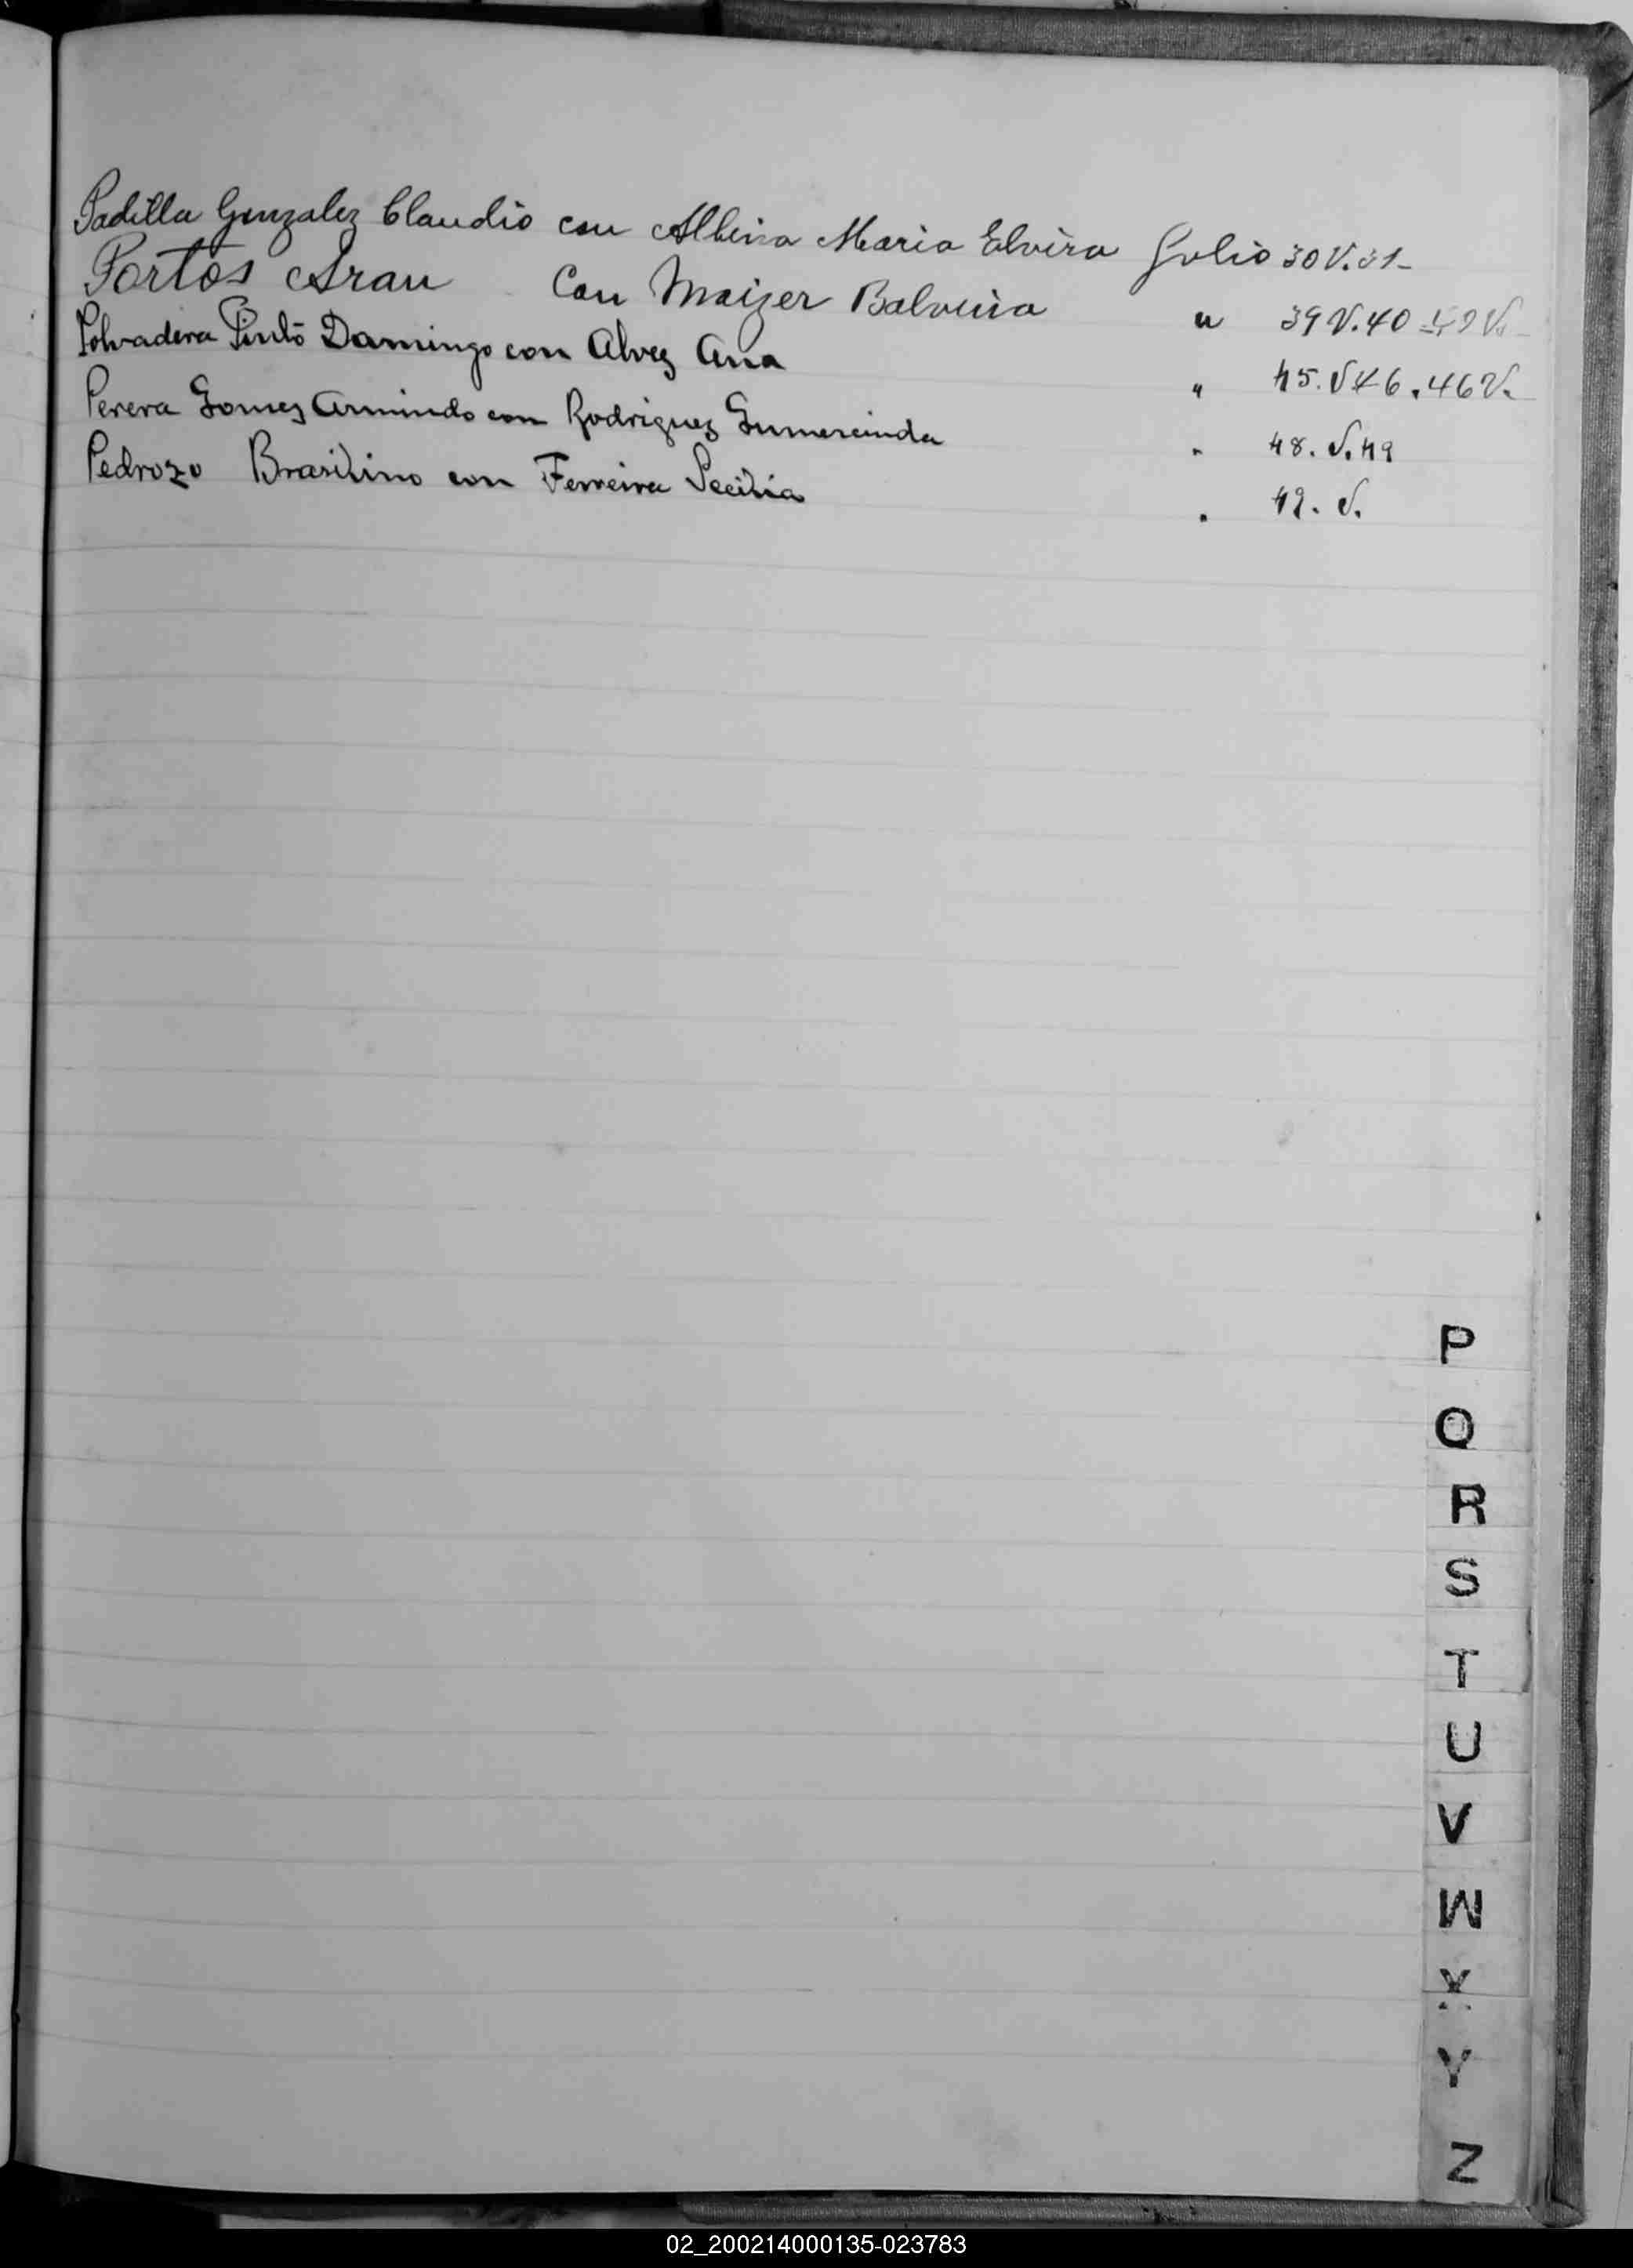 Padilla Gonzalez Claudio con Albina Maria Elvira Folio 30 V. 31-
Portos Arau Con Maizer Balvina " 39 V. 40
Polvadera Pintó Domingo con Alvez Ana " 45. V 46. 46 V.
Perera Gomez Armindo con Rodriguez Gumercinda " 48. V. 49
Pedrozo Brasilino con Ferreira Secilia " 49. V.
P
Q
R
S
T
U
V
W
X
Y
Z
02_200214000135-023783